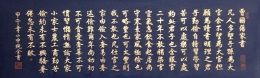 曾國藩家書
凡人多望子孫為大
官余不願為大官但
願為讀書明理之君
子勤儉自持習勞習
苦可以處樂可以處
約此君子也余服官
二十年不敢稍染官
宦氣習飲食起居尚
守寒素家風極儉也
可略豐也可太豐則
吾不敢也凡仕宦之
家由儉入奢易由奢
返儉難爾年尚幼切
不可貪愛奢華不可
慣習懶惰無論大家
小家士農工商勤苦
儉約未有不興驕奢
倦怠未有不敗
甲午